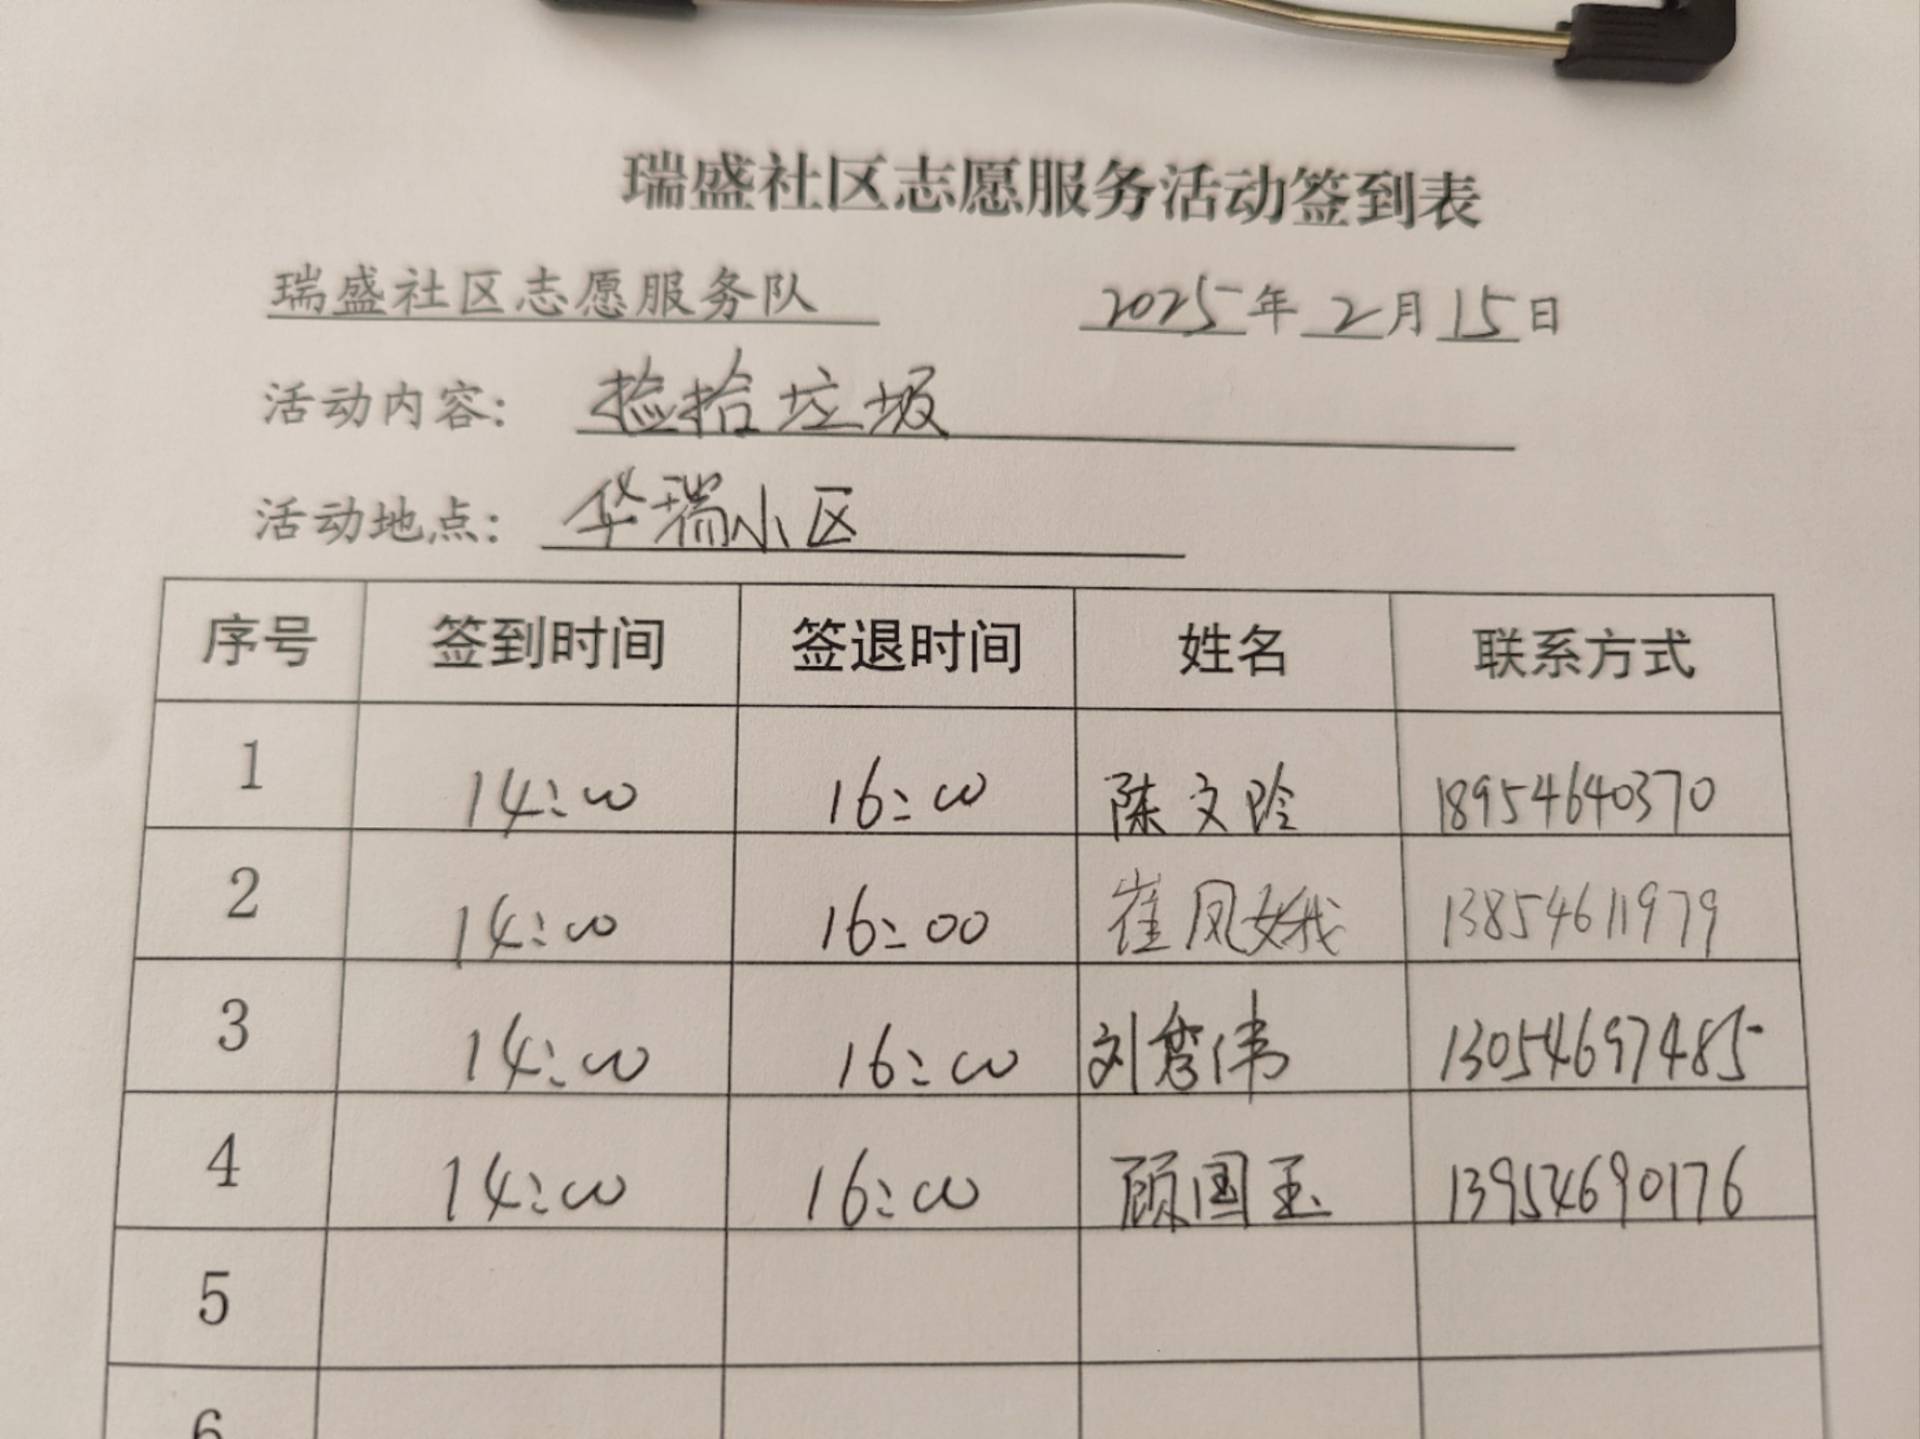 瑞盛社区志愿服务活动签到表
瑞盛社区志愿服务队 2025年2月15日
活动内容: 捡拾垃圾
活动地点: 华瑞小区
序号 签到时间 签退时间 姓名 联系方式
1 14:00 16:00 陈文玲 18954640370
2 14:00 16:00 崔凤娥 13854611979
3 14:00 16:00 刘秀伟 13054697485
4 14:00 16:00 顾国玉 13954690176
5
6